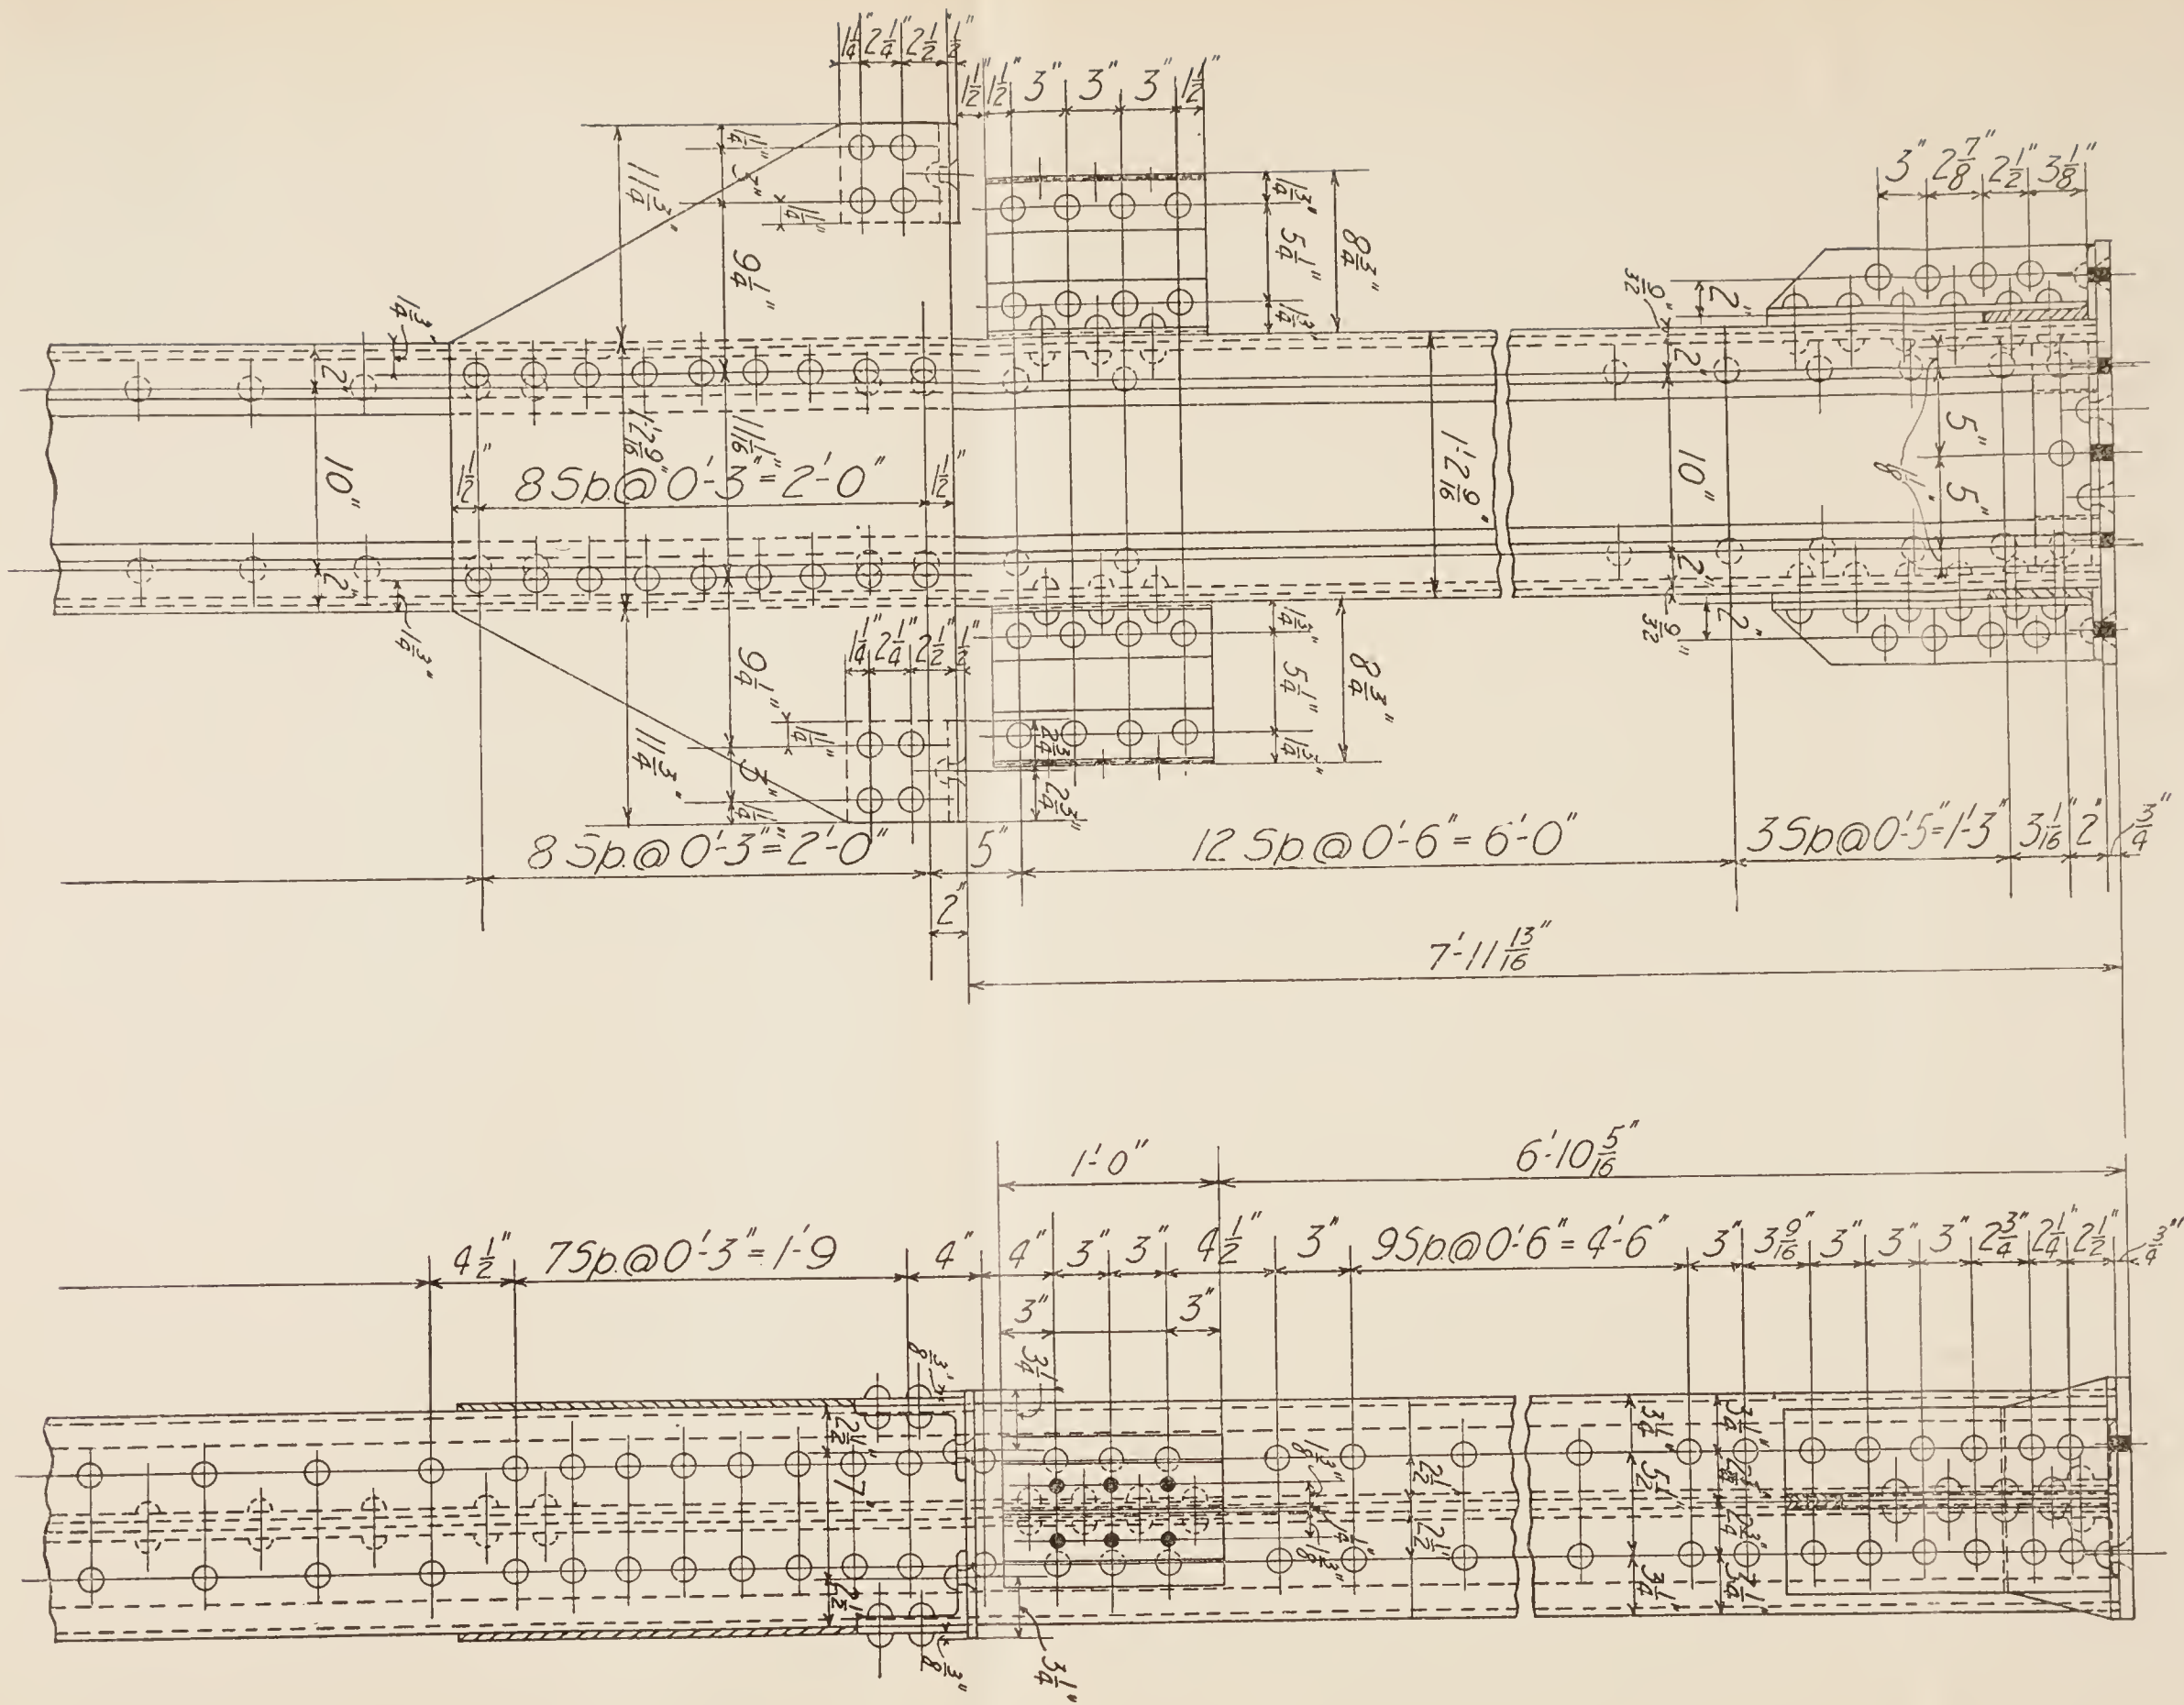 1 1/4" 2 1/4" 2 1/2" 1/2"
1 1/2" 1 1/2" 3" 3" 3" 1 1/2"
3" 2 7/8" 2 1/2" 3 1/8"
11 3/4"
1 1/4"
3"
1 1/4"
9 1/4"
1 3/4"
5 1/4"
1 3/4"
8 3/4"
9/32"
2"
1 3/4"
2"
10"
2"
1 3/4"
1 1/2" 8 Sp. @ 0'-3" = 2'-0" 1 1/2"
1'-2 9/16"
11 1/16"
1'-2 9/16"
2"
10"
2"
9/32"
2"
5"
5"
1 1/4" 2 1/4" 2 1/2" 1/2"
11 3/4"
9 1/4"
3"
1 1/4"
1 1/4"
2 3/4"
2 3/4"
1 3/4"
5 1/4"
1 3/4"
8 3/4"
8 Sp. @ 0'-3" = 2'-0" 5" 12 Sp. @ 0'-6" = 6'-0" 3 Sp @ 0'-5" = 1'-3" 3 1/16" 2" 3/4"
2"
7'-11 13/16"
1'-0" 6'-10 5/16"
4 1/2" 7 Sp. @ 0'-3" = 1'-9 4" 4" 3" 3" 4 1/2" 3" 9 Sp. @ 0'-6" = 4'-6" 3" 3 9/16" 3" 3" 3" 2 3/4" 2 1/4" 2 1/2" 3/4"
3" 3"
3/8"
3 1/4"
2 1/2"
7"
2 1/2"
3/8"
3 1/4"
1 3/8"
1/4"
1 3/8"
2 1/2"
2 1/2"
3 1/4"
5 1/2"
3 1/4"
3 1/4"
2 3/4"
2 3/4"
3 1/4"